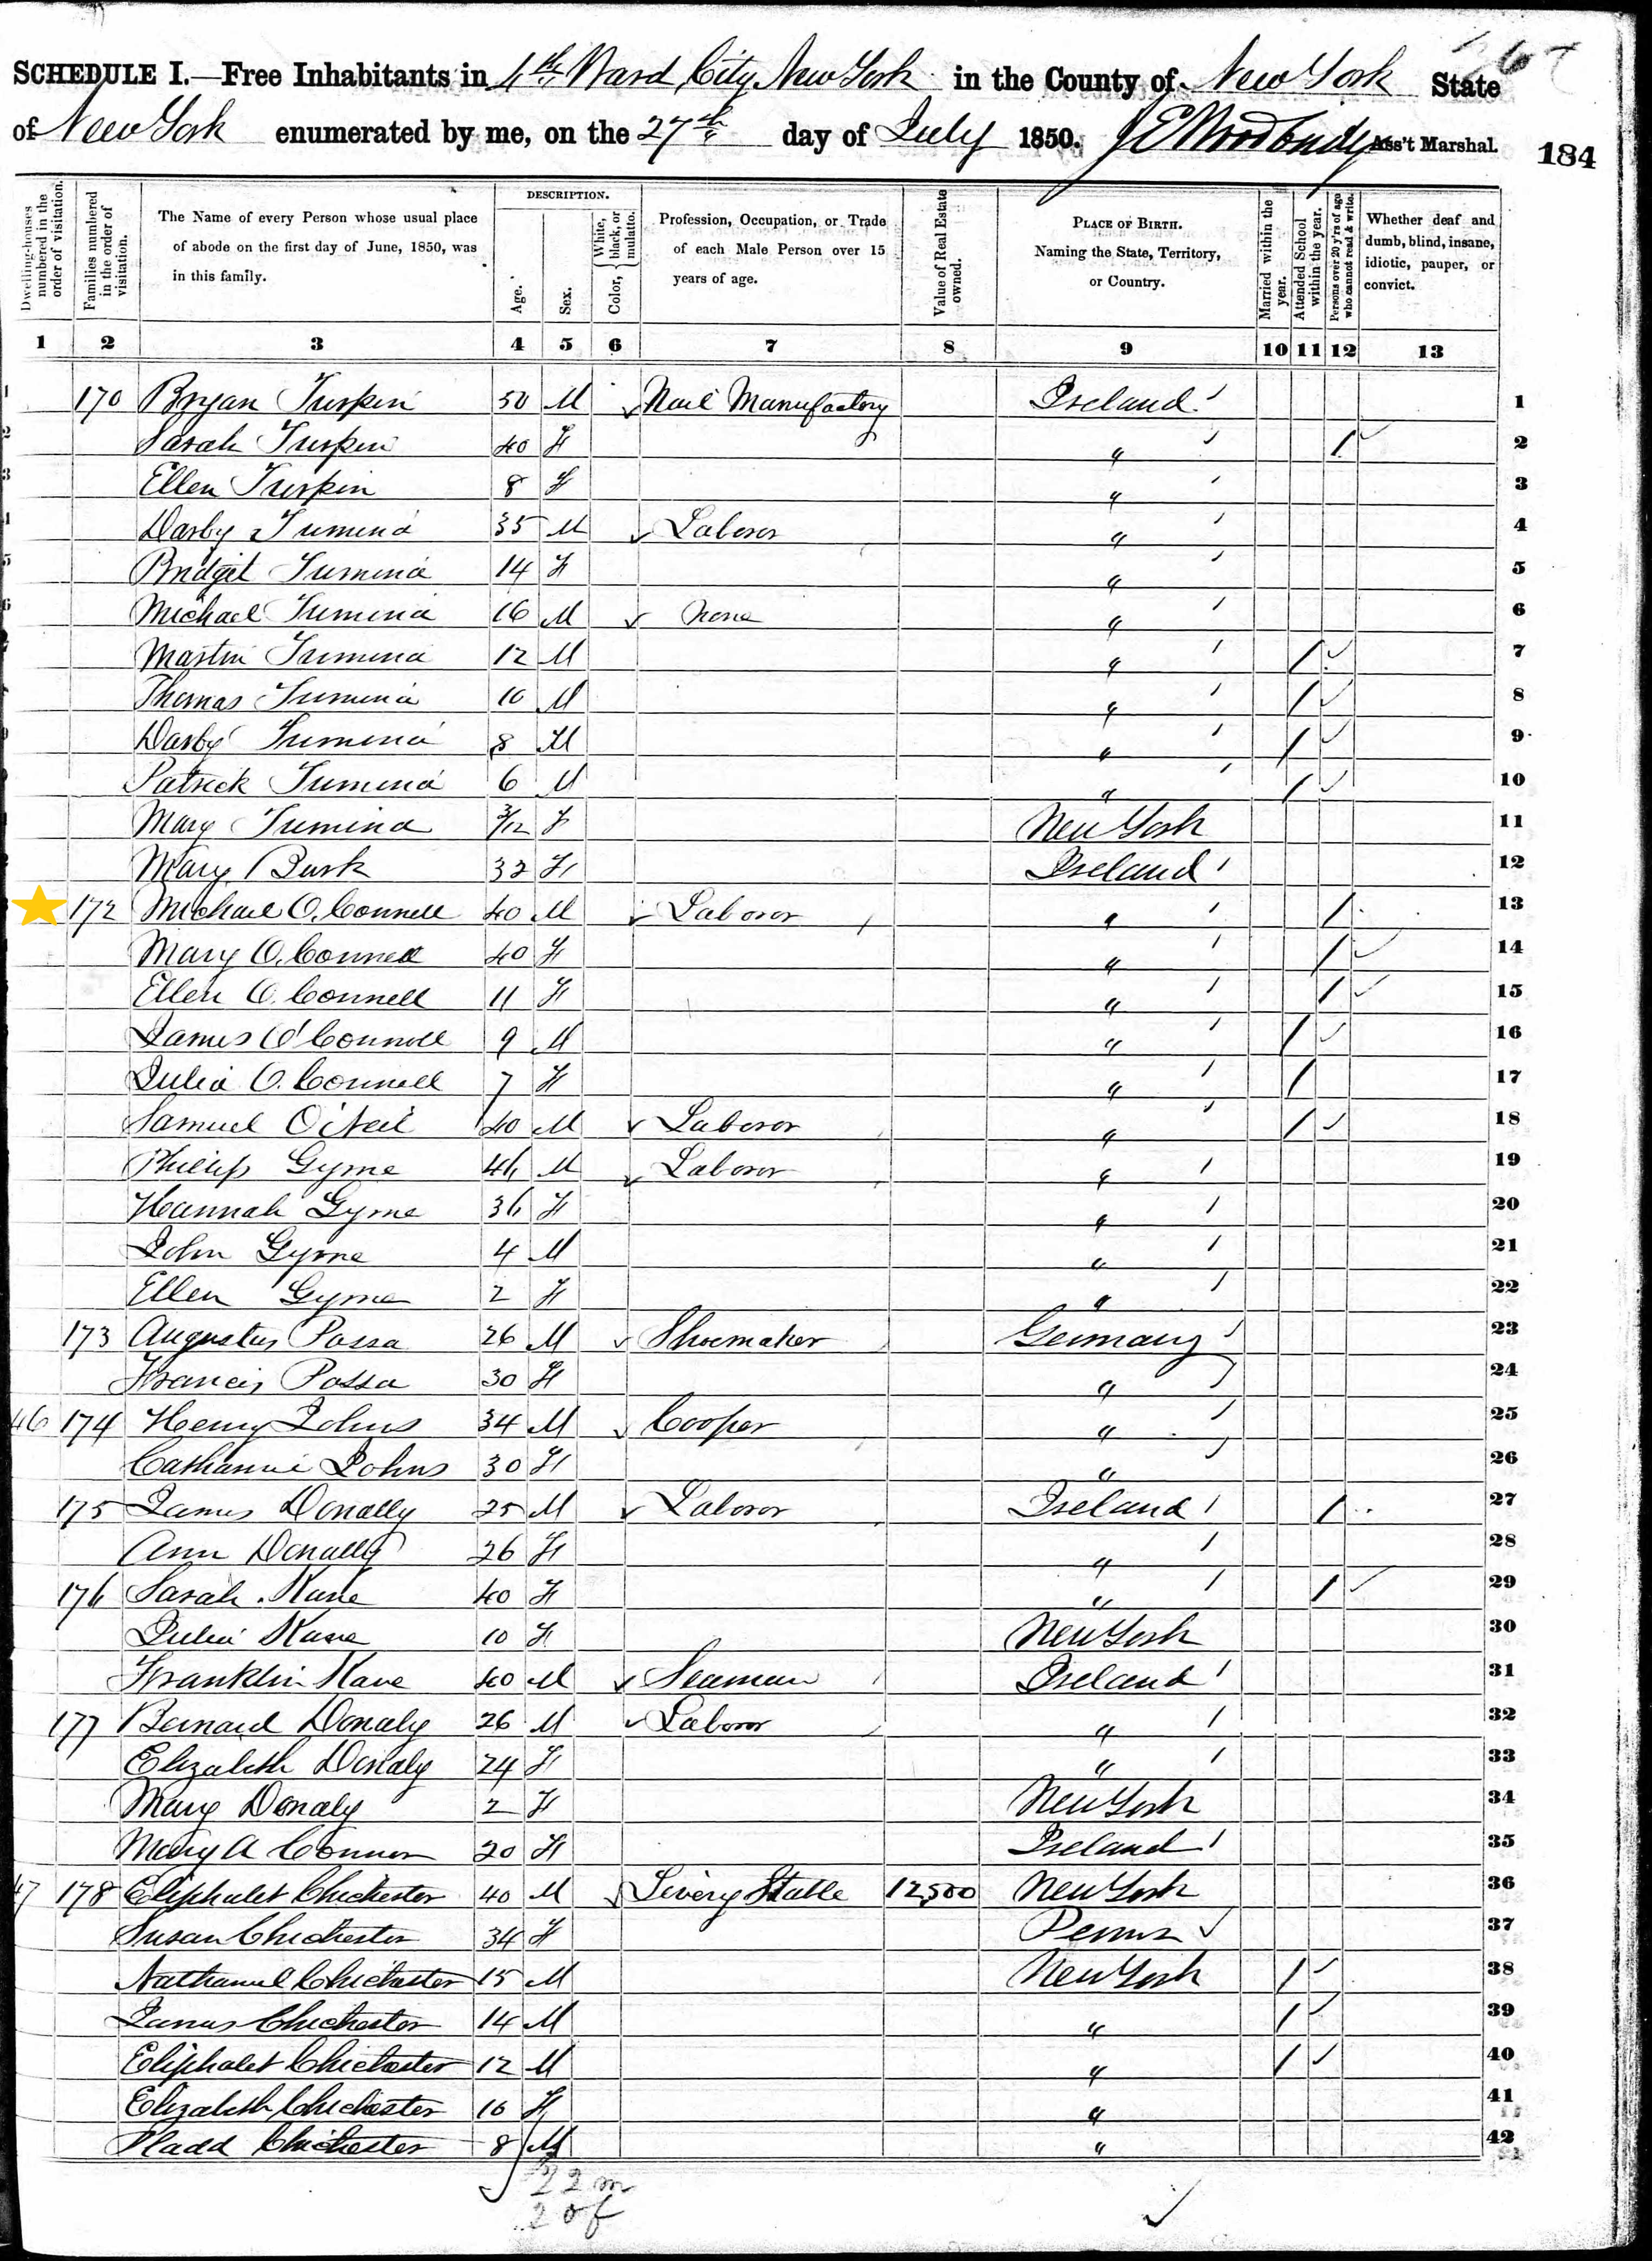 SCHEDULE I.—Free Inhabitants in 4th Ward City New York in the County of New York State
of New York enumerated by me, on the 27th day of July 1850. J E Woodbudy Ass't Marshal. 184
Dwelling-houses numbered in the order of visitation.
Families numbered in the order of visitation.
The Name of every Person whose usual place of abode on the first day of June, 1850, was in this family.
DESCRIPTION.
Age.
Sex.
Color, { White, black, or mulatto.
Profession, Occupation, or Trade of each Male Person over 15 years of age.
Value of Real Estate owned.
PLACE OF BIRTH. Naming the State, Territory, or Country.
Married within the year.
Attended School within the year.
Persons over 20 y'rs of age who cannot read & write.
Whether deaf and dumb, blind, insane, idiotic, pauper, or convict.
1 2 3 4 5 6 7 8 9 10 11 12 13
170 Bryan Turpin 50 M Nail Manufactory Ireland 1
Sarah Turpin 40 F " / 2
Ellen Turpin 8 F " 3
Darby Tumina 35 M Laboror " 4
Bridgit Tumina 14 F " 5
Michael Tumina 16 M None " 6
Martin Tumina 12 M " / 7
Thomas Tumina 10 M " / 8
Darby Tumina 8 M " / 9
Patrick Tumina 6 M " / 10
Mary Tumina 3/12 F New York 11
Mary Burk 32 F Ireland 12
172 Michael O.Connell 40 M Laboror " / 13
Mary O.Connell 40 F " / 14
Ellen O.Connell 11 F " / 15
James O'Connell 9 M " / 16
Julia O.Connell 7 F " / 17
Samuel O'Neil 40 M Laboror " / 18
Philip Gyrne 46 M Laboror " 19
Hannah Gyrne 36 F " 20
John Gyrne 4 M " 21
Ellen Gyrne 2 F " 22
173 Augustus Possa 26 M Shoemaker Germany 23
Francis Possa 30 F " 24
46 174 Henry Johns 34 M Cooper " 25
Catharine Johns 30 F " 26
175 James Donally 25 M Laboror Ireland / 27
Ann Donally 26 F " 28
176 Sarah Kane 40 F " / 29
Julia Kane 10 F New York 30
Franklin Kane 40 M Seaman Ireland 31
177 Bernard Donaly 26 M Laboror " 32
Elizabeth Donaly 24 F " 33
Mary Donaly 2 F New York 34
Mary A Connor 20 F Ireland 35
47 178 Eliphalet Chichester 40 M Livery Stable 12,500 New York 36
Susan Chichester 34 F Penns 37
Nathanuel Chichester 15 M New York / 38
James Chichester 14 M " / 39
Eliphalet Chichester 12 M " / 40
Elizabeth Chichester 10 F " 41
Chichester 8 M " 42
22 m
20 f